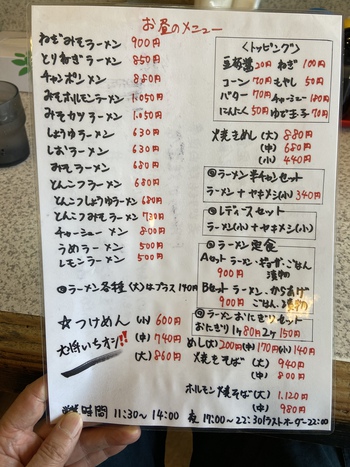 お昼のメニュー
ねぎみそラーメン 900円
とりねぎラーメン 850円
チャンポンメン 880円
みそホルモンラーメン 1.050円
みそカツラーメン 1.050円
しょうゆラーメン 630円
しおラーメン 630円
みそラーメン 680円
とんこつラーメン 680円
とんこつしょうゆラーメン 680円
とんこつみそラーメン 730円
チャーシューメン 800円
うめラーメン 500円
レモンラーメン 500円
◎ラーメン各種(大)はプラス 140円
☆つけめん (小) 600円
大将いちオシ!! (中) 740円
(大) 860円
<トッピング>
豆板醤20円 ねぎ 100円
コーン 70円 もやし 50円
バター 70円 チャーシュー 180円
にんにく 50円 ゆで玉子 70円
焼きめし (大) 880円
(中) 680円
(小) 440円
◎ラーメン半チャンセット
ラーメン+ヤキメシ(小) 340円
◎レディースセット
ラーメン(小)+ヤキメシ(小)
◎ラーメン定食
Aセット ラーメン・ギョーザ・ごはん
900円 漬物
Bセット ラーメン・からあげ
900円 ごはん・漬物
◎ラーメンおにぎりセット
おにぎり 1ヶ80円 2ヶ150円
めし(大)200円(中)170円(小)140円
焼きそば (大) 940円
(中) 800円
ホルモン焼そば(大) 1.120円
(中) 980円
営業時間 11:30～14:00 夜 17:00～22:30(ラストオーダー22:00)